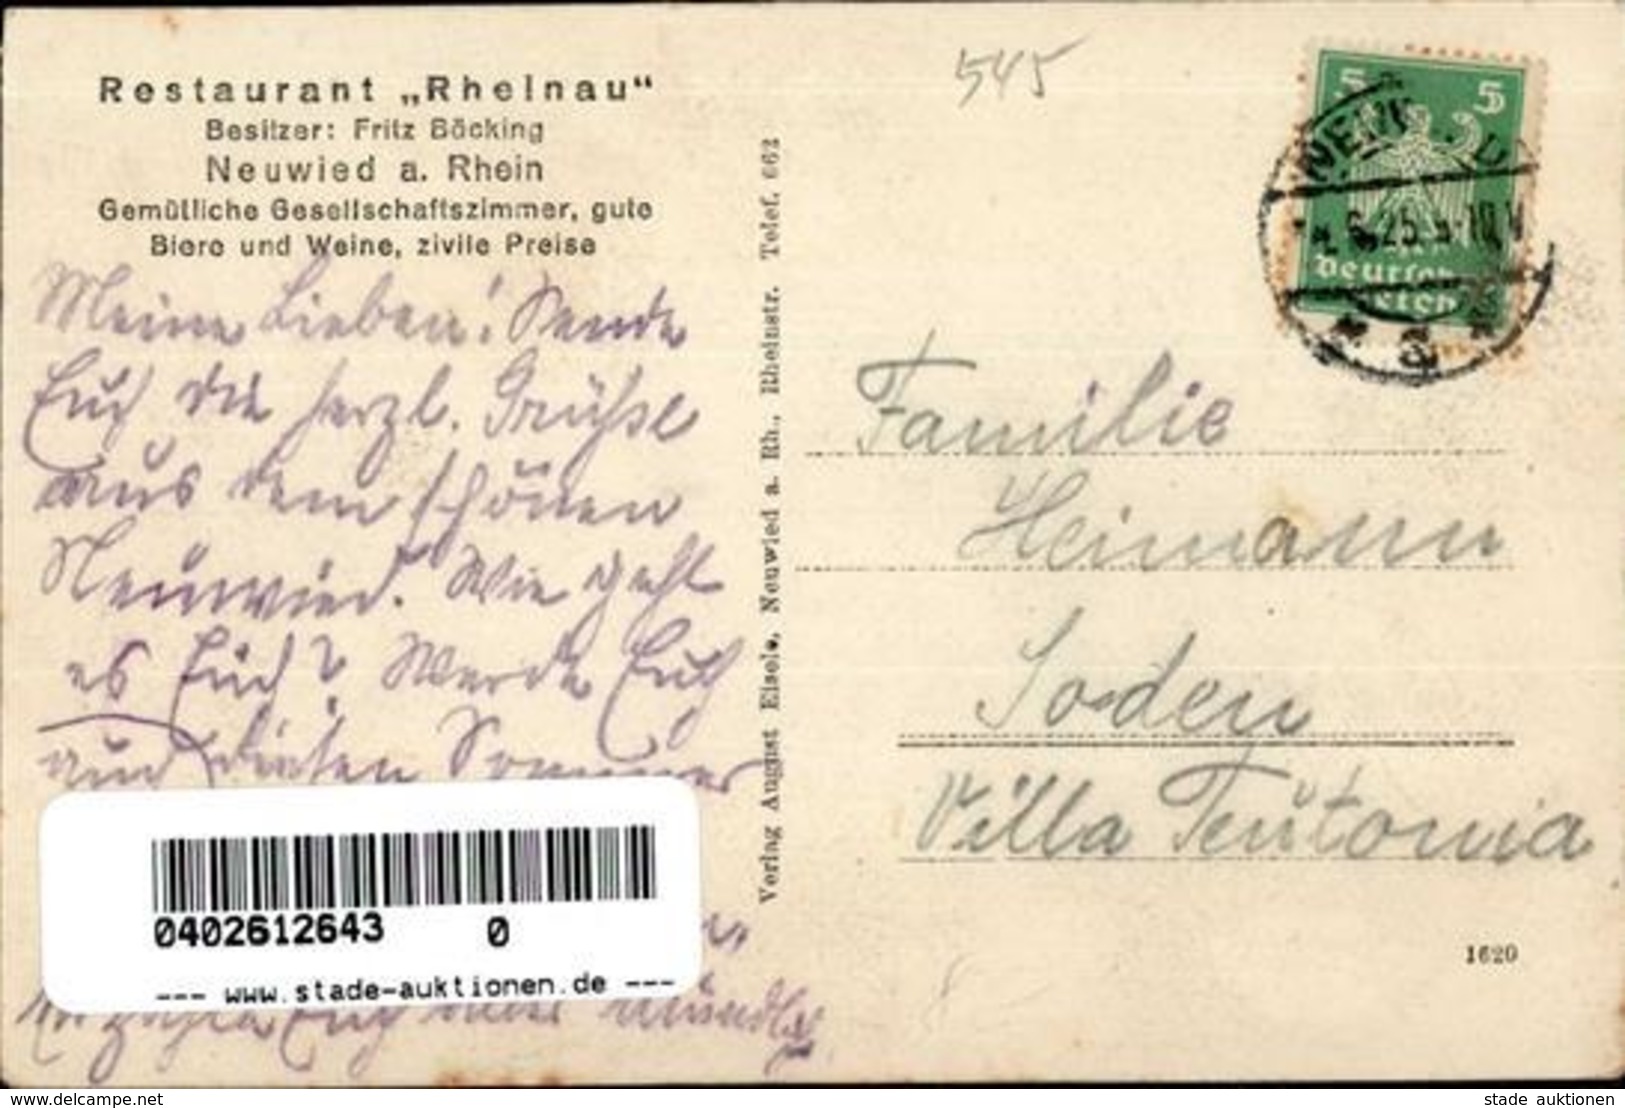 Restaurant „Rheinau“
Besitzer: Fritz Böcking
Neuwied a. Rhein
Gemütliche Gesellschaftszimmer, gute
Biere und Weine, zivile Preise
Meine Lieben! Sende
Euch die herzl. Grüße
aus dem schönen
Neuwied. Wie geht
es Euch? Werde Euch
auch diesen Sommer
Euch mündl.
0402612643 0
--- www.stade-auktionen.de ---
Verlag August Eisele, Neuwied a. Rh., Rheinstr. Telef. 662
545
5 5
Deutsches
Reich
6.25. 9-10.V
Familie
Heimann
Soden
Villa Teutonia
1620
www.delcampe.net/stores/the_best
stade auktionen